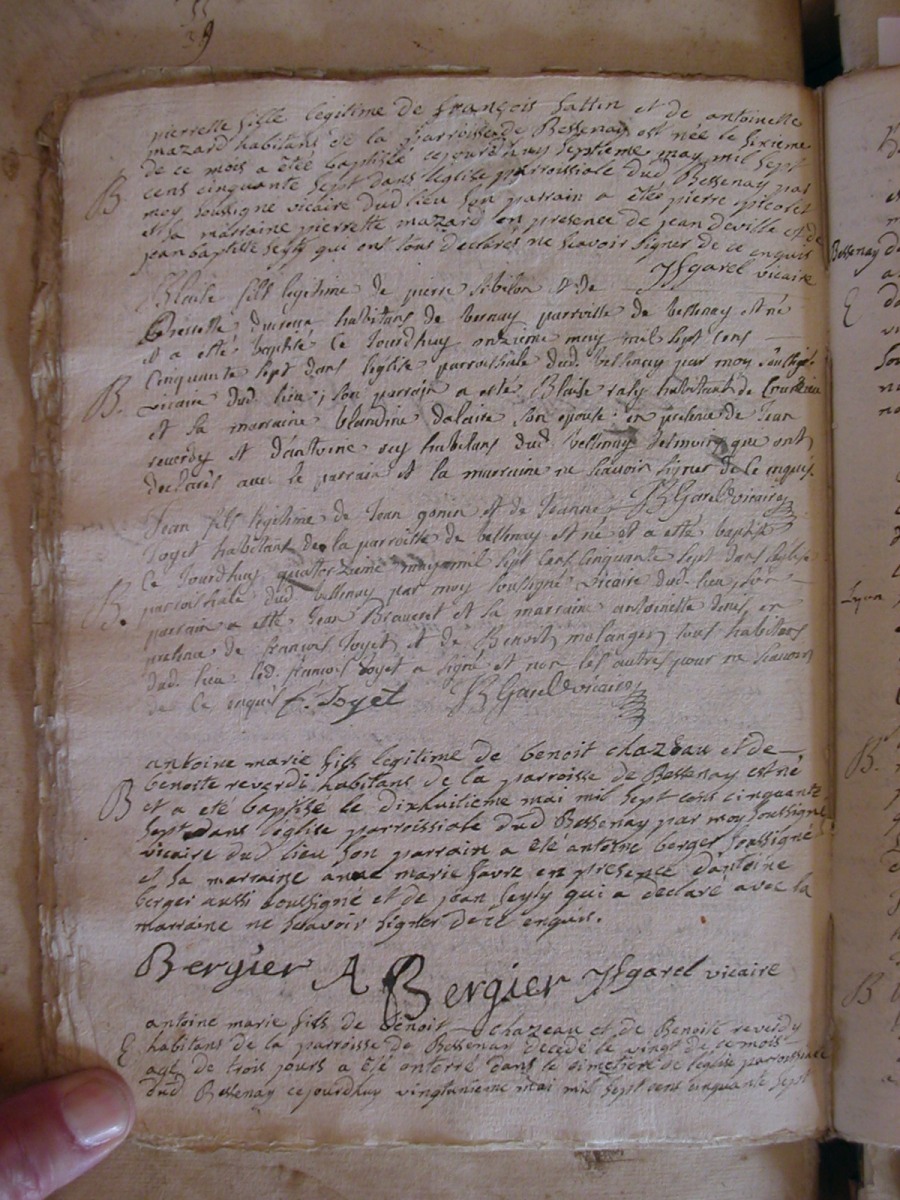 pierrette fille legitime de françois fattin et de antoinette
mazard habitans de la parroisse de Bessenay est née le sixieme
de ce mois a étée baptisée cejourdhuy septieme may mil sept
B cens cinquante sept dans leglise parroissiale dud Bessenay par
moy soussigné vicaire dud lieu son parrain a étés pierre
et sa marraine pierrette mazard en presence de jean deville et de
jean baptiste seyty qui ont tous declarés ne scavoir signer de ce enquis
JBgarel vicaire
Blaise fils legitime de pierre sibilon et de
habitans de Bernay parroisse de bessenay est né
et a esté baptisé ce jourdhuy onzieme may mil sept cens
Cinquante sept dans leglise parroissiale dud. bessenay par moy soussigé
B. vicaire dud. lieu, son parrain a esté Blaise raty habitant de
et sa marraine blandine dalaire son epouse: en presence de Jean
reverdy et d'antoine sey habitans dud. bessenay temoins que ont
declarés avec le parrain et la marraine ne scavoir signer de ce enquis.
JBGarel vicaire
Jean fils legitime de Jean gonin et de Jeanne
Joyet habitans de la parroisse de bessenay est né et a esté baptisé
Ce Jourdhuy quattorzieme may mil sept cens Cinquante sept dans leglise
B. parroissiale dud bessenay par moy soussigné vicaire dud. lieu, son
parrain a esté Jean et la marraine antoinette en
presence de françois Joyet et de Benoit molanger tous habitans
dud. lieu led. françois Joyet a signé et non les autres pour ne scavoir
de ce enquis f. Joyet JBGarel vicaire
antoine marie fils legitime de benoit chazeau et de
benoite reverdi habitans de la parroisse de Bessenay est né
B et a eté baptisé le dixhuitieme mai mil sept cens cinquante
sept dans leglise parroissiale dud Bessenay par moy soussigné
vicaire dud lieu son parrain a eté antoine berger soussigné
et la marraine anne marie favre en presence d'antoine
berger aussi soussigné et de jean seyty qui a declaré avec la
marraine ne scavoir signer de ce enquis.
Bergier A Bergier JBgarel vicaire
antoine marie fils de Benoit chazeau et de Benoite reverdy
E habitans de la parroisse de Bessenay decedé le vingt de ce mois
agé de trois jours a eté enterré dans le cimetiere de l'eglise parroissiale
dud Bessenay cejourdhuy vingtunieme mai mil sept cens cinquante sept